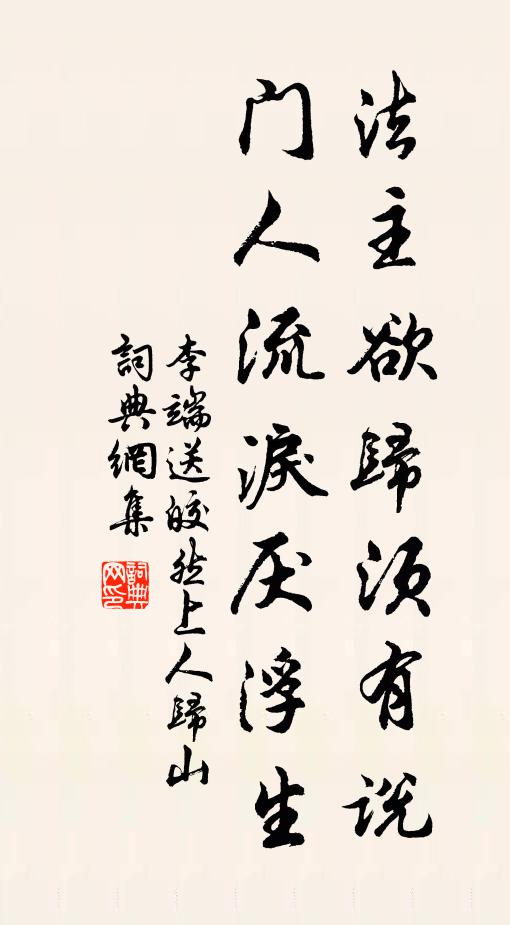 法主欲歸须有说
门人流淚厌浮生
李端送皎然上人歸山
詞典網集
詞典网印